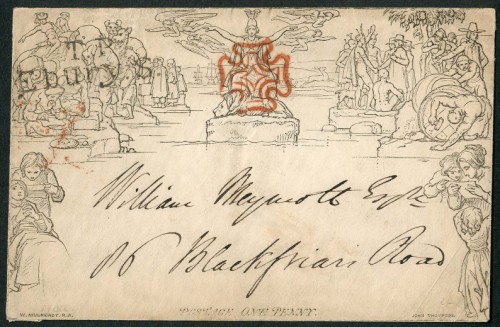 T.P
Ebury S
William Meymott Esqre
86 Blackfriars Road
POSTAGE ONE PENNY.
W. MULREADY, R.A.
JOHN THOMPSON